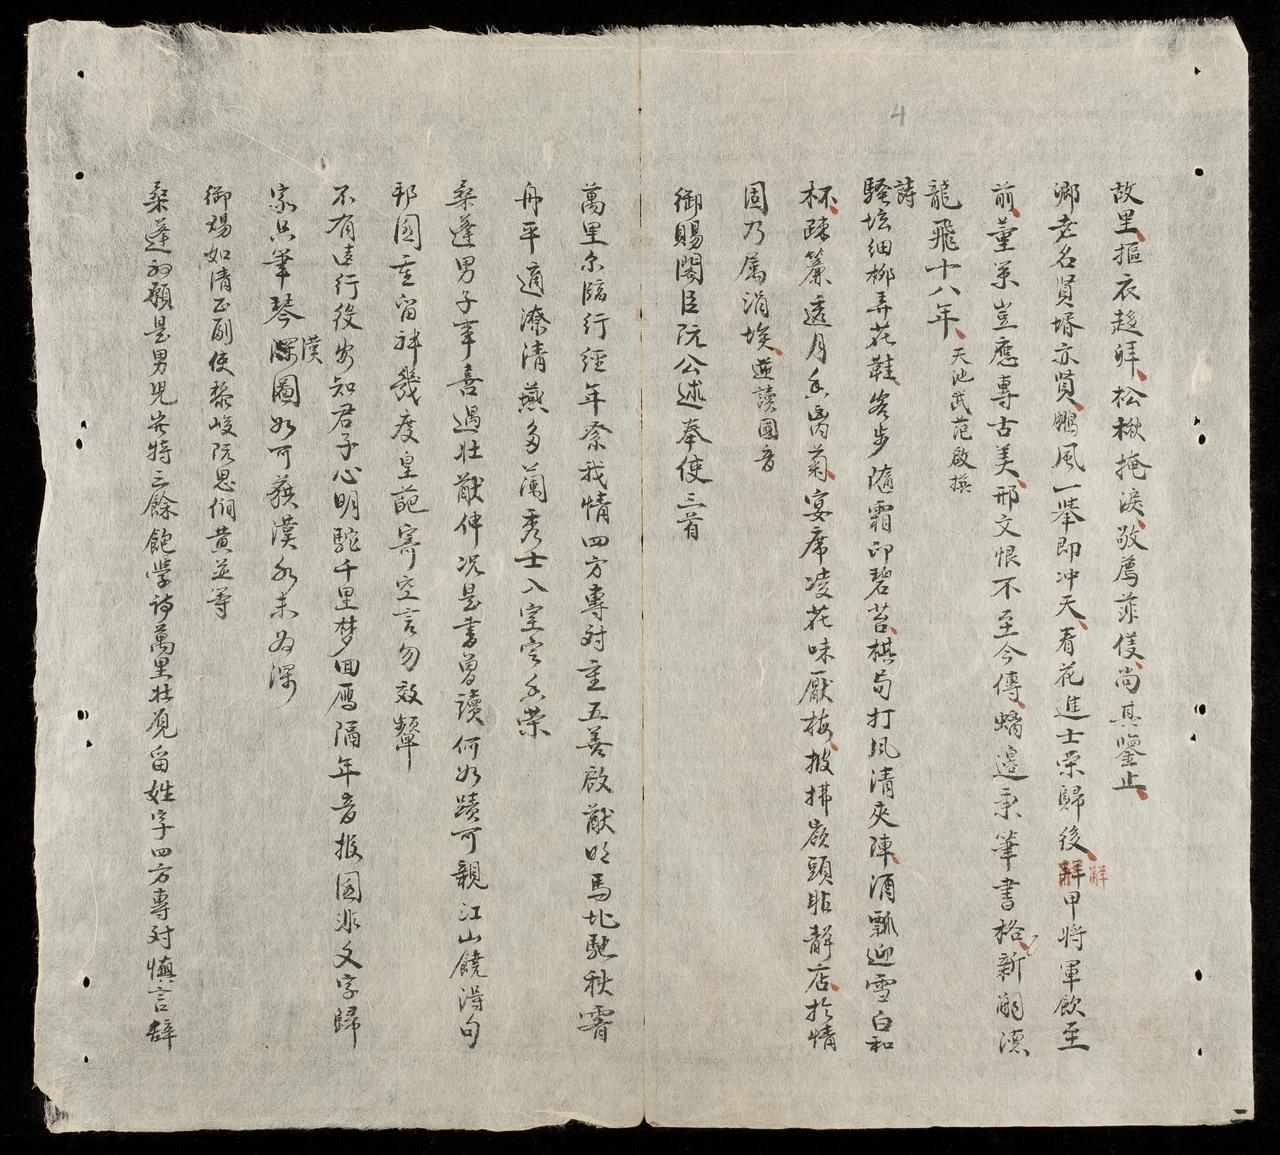 4
故里摳衣趍拜松楸掩淚敬薦菲儀尚其鑒止
鄉老名賢壻亦賢鵬風一舉即冲天看花進士榮歸後解甲將軍飲至
解
前董業豈應專古美邢文恨不至今傳嫡邉秉筆書格新嗣德
龍飛十八年天池武范啟撰
詩
騷坛細柳弄花鞋客步隨霜印碧苔棋局打風清夾陣酒瓢迎雪白和
杯疎簾透月香商菊宴席凌花味厭梅披拂嶺頭貼靜店於情
固乃属涓埃並讀國音
御賜閣臣阮公述奉使三首
萬里尔臨行經年係我情四方專対重五善啟猷明馬北馳秋霽
舟平適潦清燕多蘭秀士入室定香荣
桑蓬男子事喜遇壮猷伸况是書曾讀何如蹟可親江山饒得句
邦國重留神幾度皇葩寄空言勿效顰
不有遠行役安知君子心明駝千里梦回鴈隔年音报國泒文字歸
家只筆琴深圖如可莪漢水未為深
漢
御賜如清正副使黎峻阮思僩黄並等
桑蓬初願是男兒安特三餘飽學詩萬里壮覓留姓字四方專対慎言辞